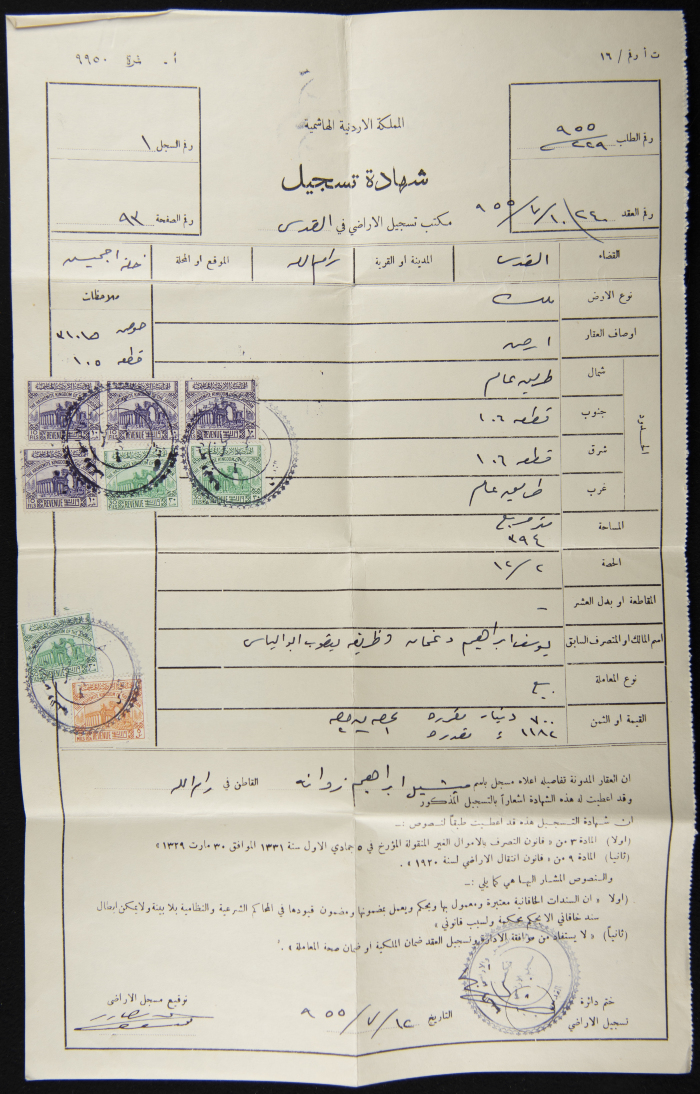 ت أ رقم / ١٦
أ. نمرة ٩٩٥٠
المملكة الاردنية الهاشمية
شهادة تسجيل
مكتب تسجيل الاراضي في القدس
رقم الطلب ٩٥٥ / ٢٢٩
رقم العقد ٢٤٠ ١٠/٧/٩٥٥
رقم السجل ١
رقم الصفحة ٩٣
القضاء القدس المدينة او القرية رام الله الموقع او المحلة
نوع الارض ملك
ملاحظات
حوض
قطعه ١٠٥
اوصاف العقار ارض
الحدود
شمال طريق عام
جنوب قطعه ١٠٦
شرق قطعه ١٠٦
غرب طريق عام
المساحة متر مربع
٣٩٤
الحصة ١٢/٢
المقاطعة او بدل العشر -
اسم المالك او المتصرف السابق يوسف ابراهيم دغمان وظريفه يعقوب ابو الياس
نوع المعاملة بيع
القيمة او الثمن ٧٠٠ دينار مقرره
١١٨٢ مقدره
THE HASHEMITE KINGDOM OF JORDAN
REVENUE
ان العقار المدونة تفاصيله اعلاه مسجل باسم ميشيل ابراهيم زوانه القاطن في رام الله
وقد اعطيت له هذه الشهادة اشعاراً بالتسجيل المذكور
ان شهادة التسجيل هذه قد اعطيت طبقاً لنصوص :ـ
(اولا) المادة ٣ من « قانون التصرف بالاموال الغير المنقولة المؤرخ في ٥ جمادي الاول سنة ١٣٣١ الموافق ٣٠ مارت ١٣٢٩»
(ثانيا) المادة ٩ من « قانون انتقال الاراضي لسنة ١٩٢٠ » .
والنصوص المشار اليها هي كما يلي :ـ
(اولا) « ان السندات الخاقانية معتبرة ومعمول بها ويحكم ويعمل بمضمونها ومضمون قيودها في المحاكم الشرعية والنظامية بلا بينة ولا يمكن ابطال
سند خاقاني الا بحكم محكمة ولسبب قانوني »
(ثانياً) « لا يستفاد من موافقة الادارة وتسجيل العقد ضمان الملكية او ضمان صحة المعاملة » .
ختم دائرة
تسجيل الاراضي
التاريخ ١٢/٧/٩٥٥
توقيع مسجل الاراضي